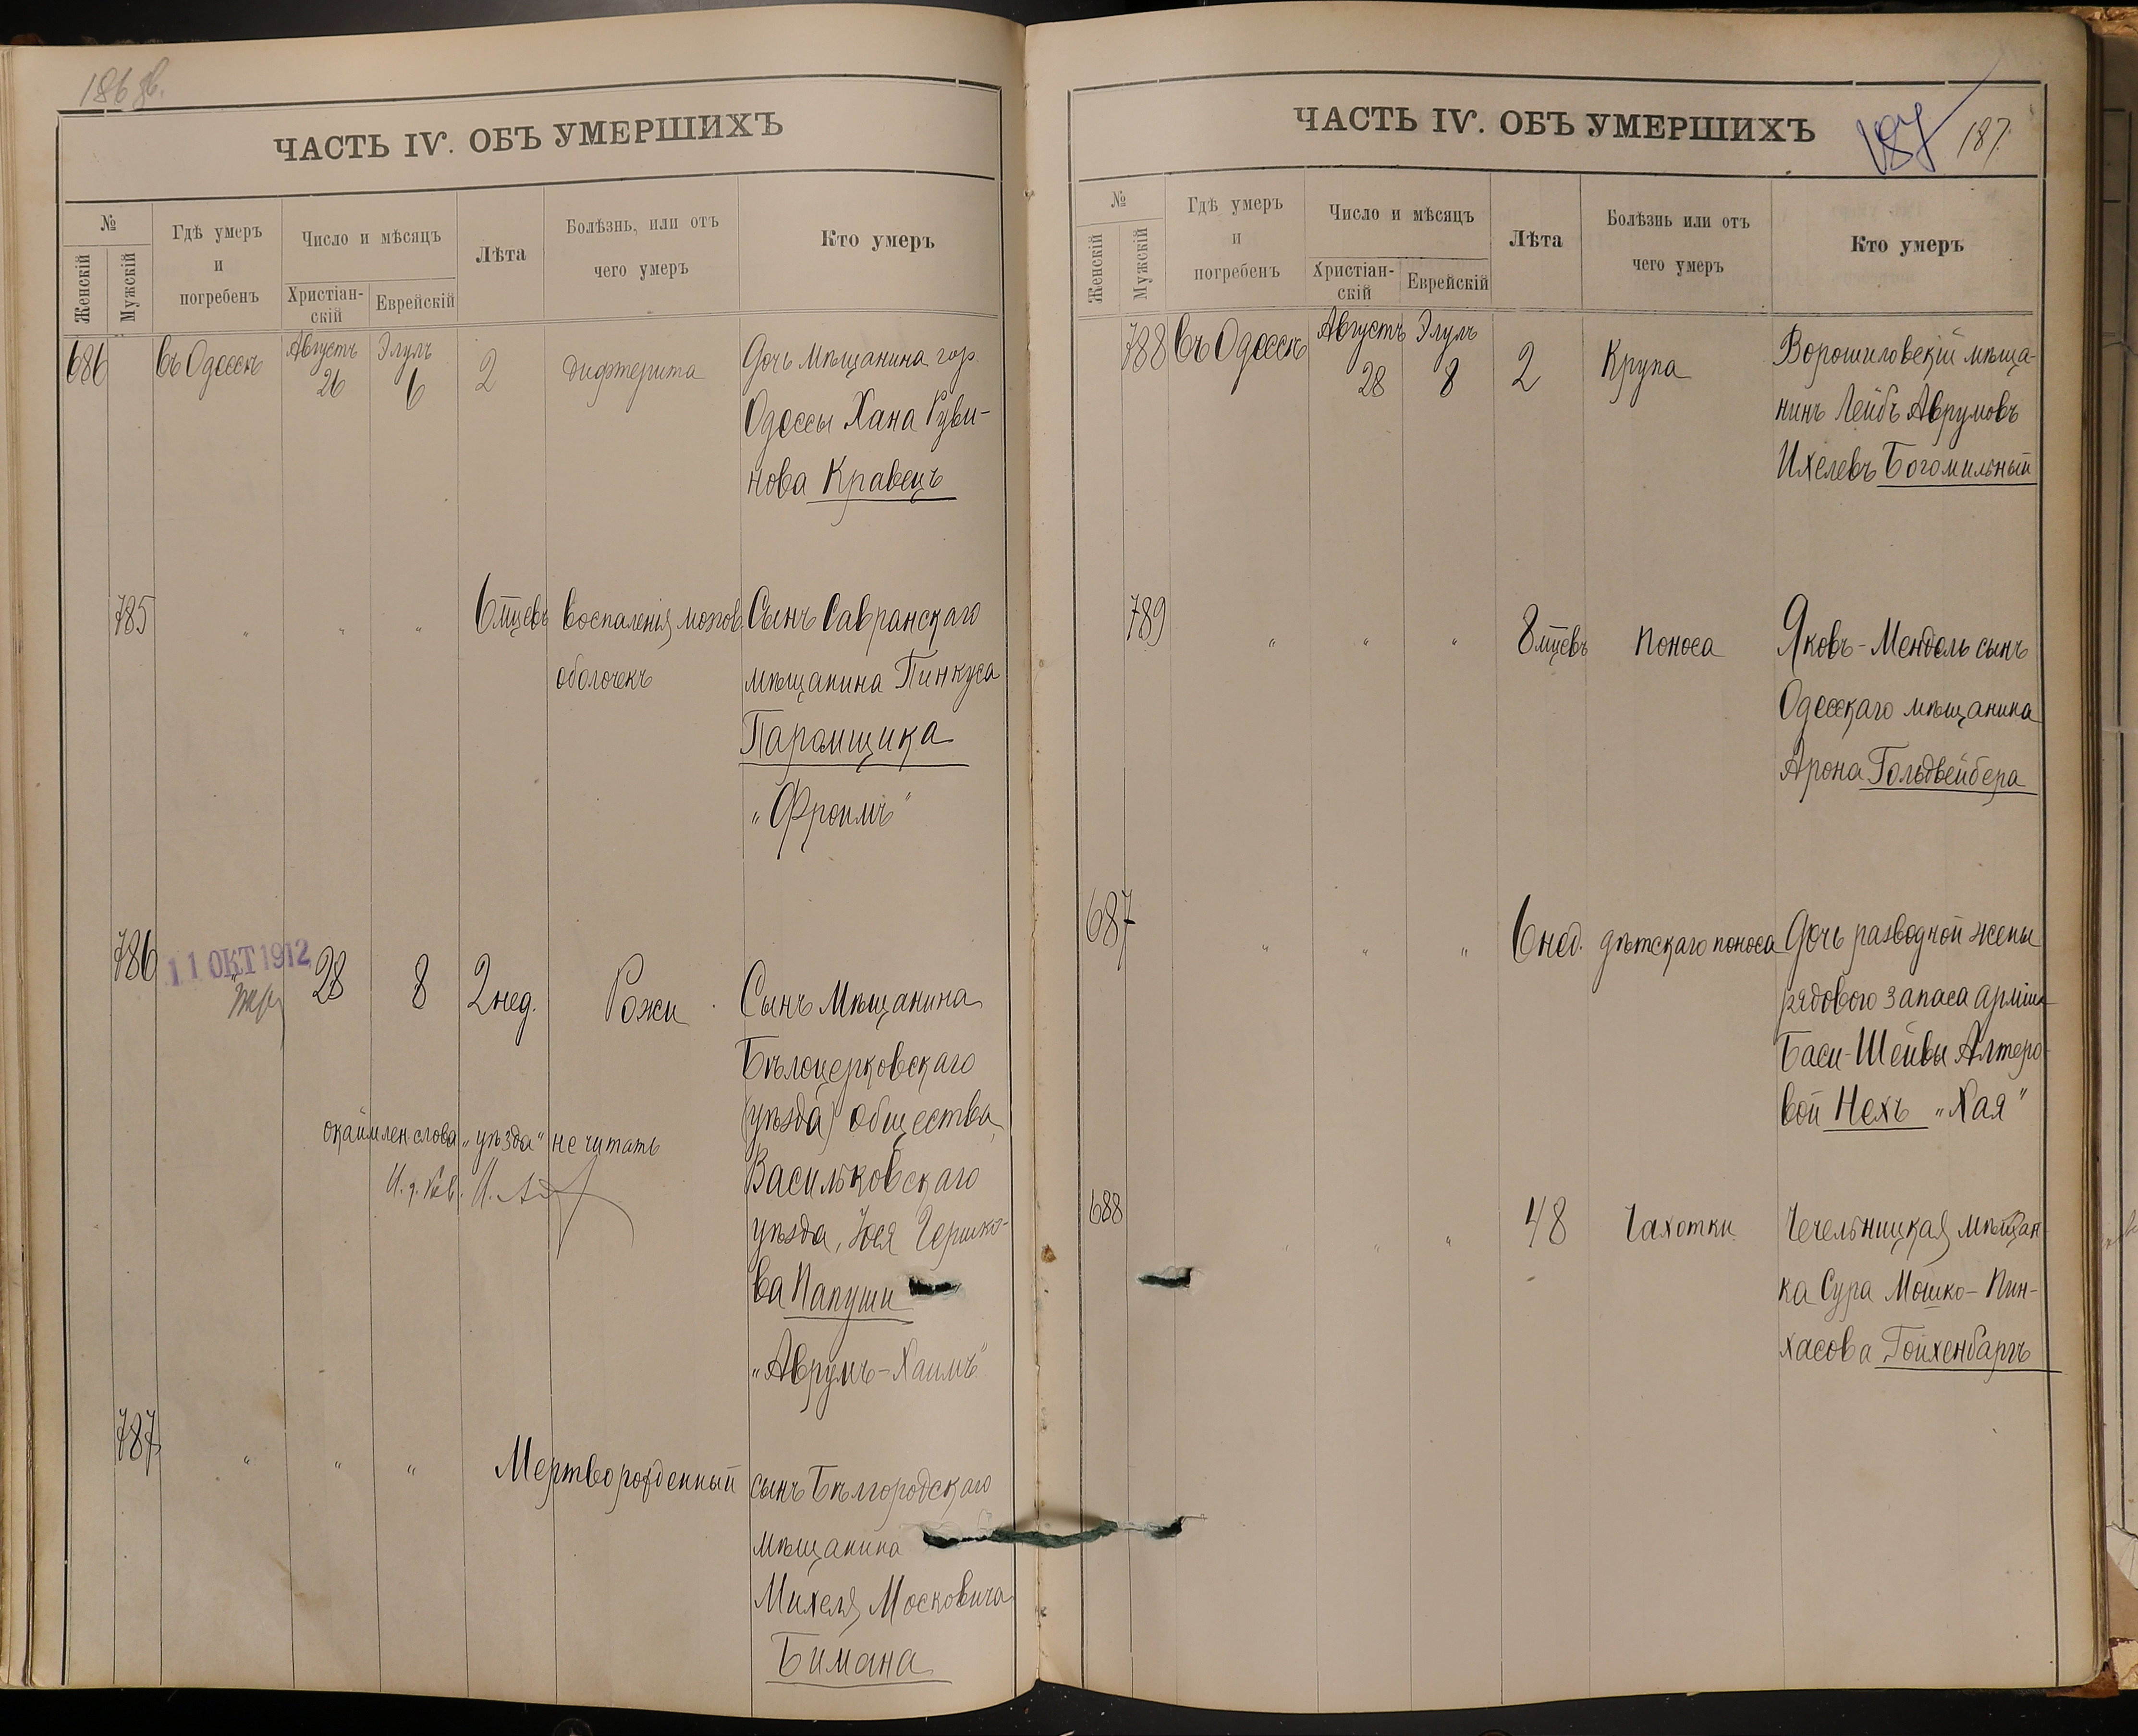 186 об.
ЧАСТЬ IV. ОБЪ УМЕРШИХЪ
№
Женскій
Мужскій
Гдѣ умеръ
и
погребенъ
Число и мѣсяцъ
Христіан-
скій
Еврейскій
Лѣта
Болѣзнь, или отъ
чего умеръ
Кто умеръ
686 Въ Одессѣ Августъ Элулъ 2 дифтерита Дочь мѣщанина гор.
26 6 Одессы Хана Руви-
нова Кравецъ
785 " " " 6 мцевъ воспаленія мозгов. Сынъ Савранскаго
оболочекъ мѣщанина Пинкуса
Паромщика
"Фроимъ"
786 11 ОКТ 1912 " 28 8 2 нед. Рожи Сынъ Мѣщанина
Бѣлоцерковскаго
(уѣзда) общества,
окаймлен слова "уѣзда" не читать
Васильковскаго
И. д. Рав.
уѣзда, Іося Гершко-
ва Папуши
"Аврумъ-Хаимъ"
787 " " " Мертворожденный сынъ Бѣлгородскаго
мѣщанина
Михеля Московича
Бимана
ЧАСТЬ IV. ОБЪ УМЕРШИХЪ
187 187.
№
Женскій
Мужскій
Гдѣ умеръ
и
погребенъ
Число и мѣсяцъ
Христіан-
скій
Еврейскій
Лѣта
Болѣзнь или отъ
чего умеръ
Кто умеръ
788 Въ Одессѣ Августъ Элулъ 2 Крупа Ворошиловскій мѣща-
28 8 нинъ Лейбъ Аврумовъ
Ихелевъ Богомильный
789 " " " 8 мцевъ Поноса Яковъ-Мендель сынъ
Одесскаго мѣщанина
Арона Гольдвейбера
687 " " " 6 нед. дѣтскаго поноса Дочь разводной жены
рядового запаса арміи
Баси-Шейвы Алтеро-
вой Нехъ "Хая"
688 " " " 48 Чахотки Чечельницкая мѣщан-
ка Сура Мошко-Пин-
хасова Гойхенбаргъ